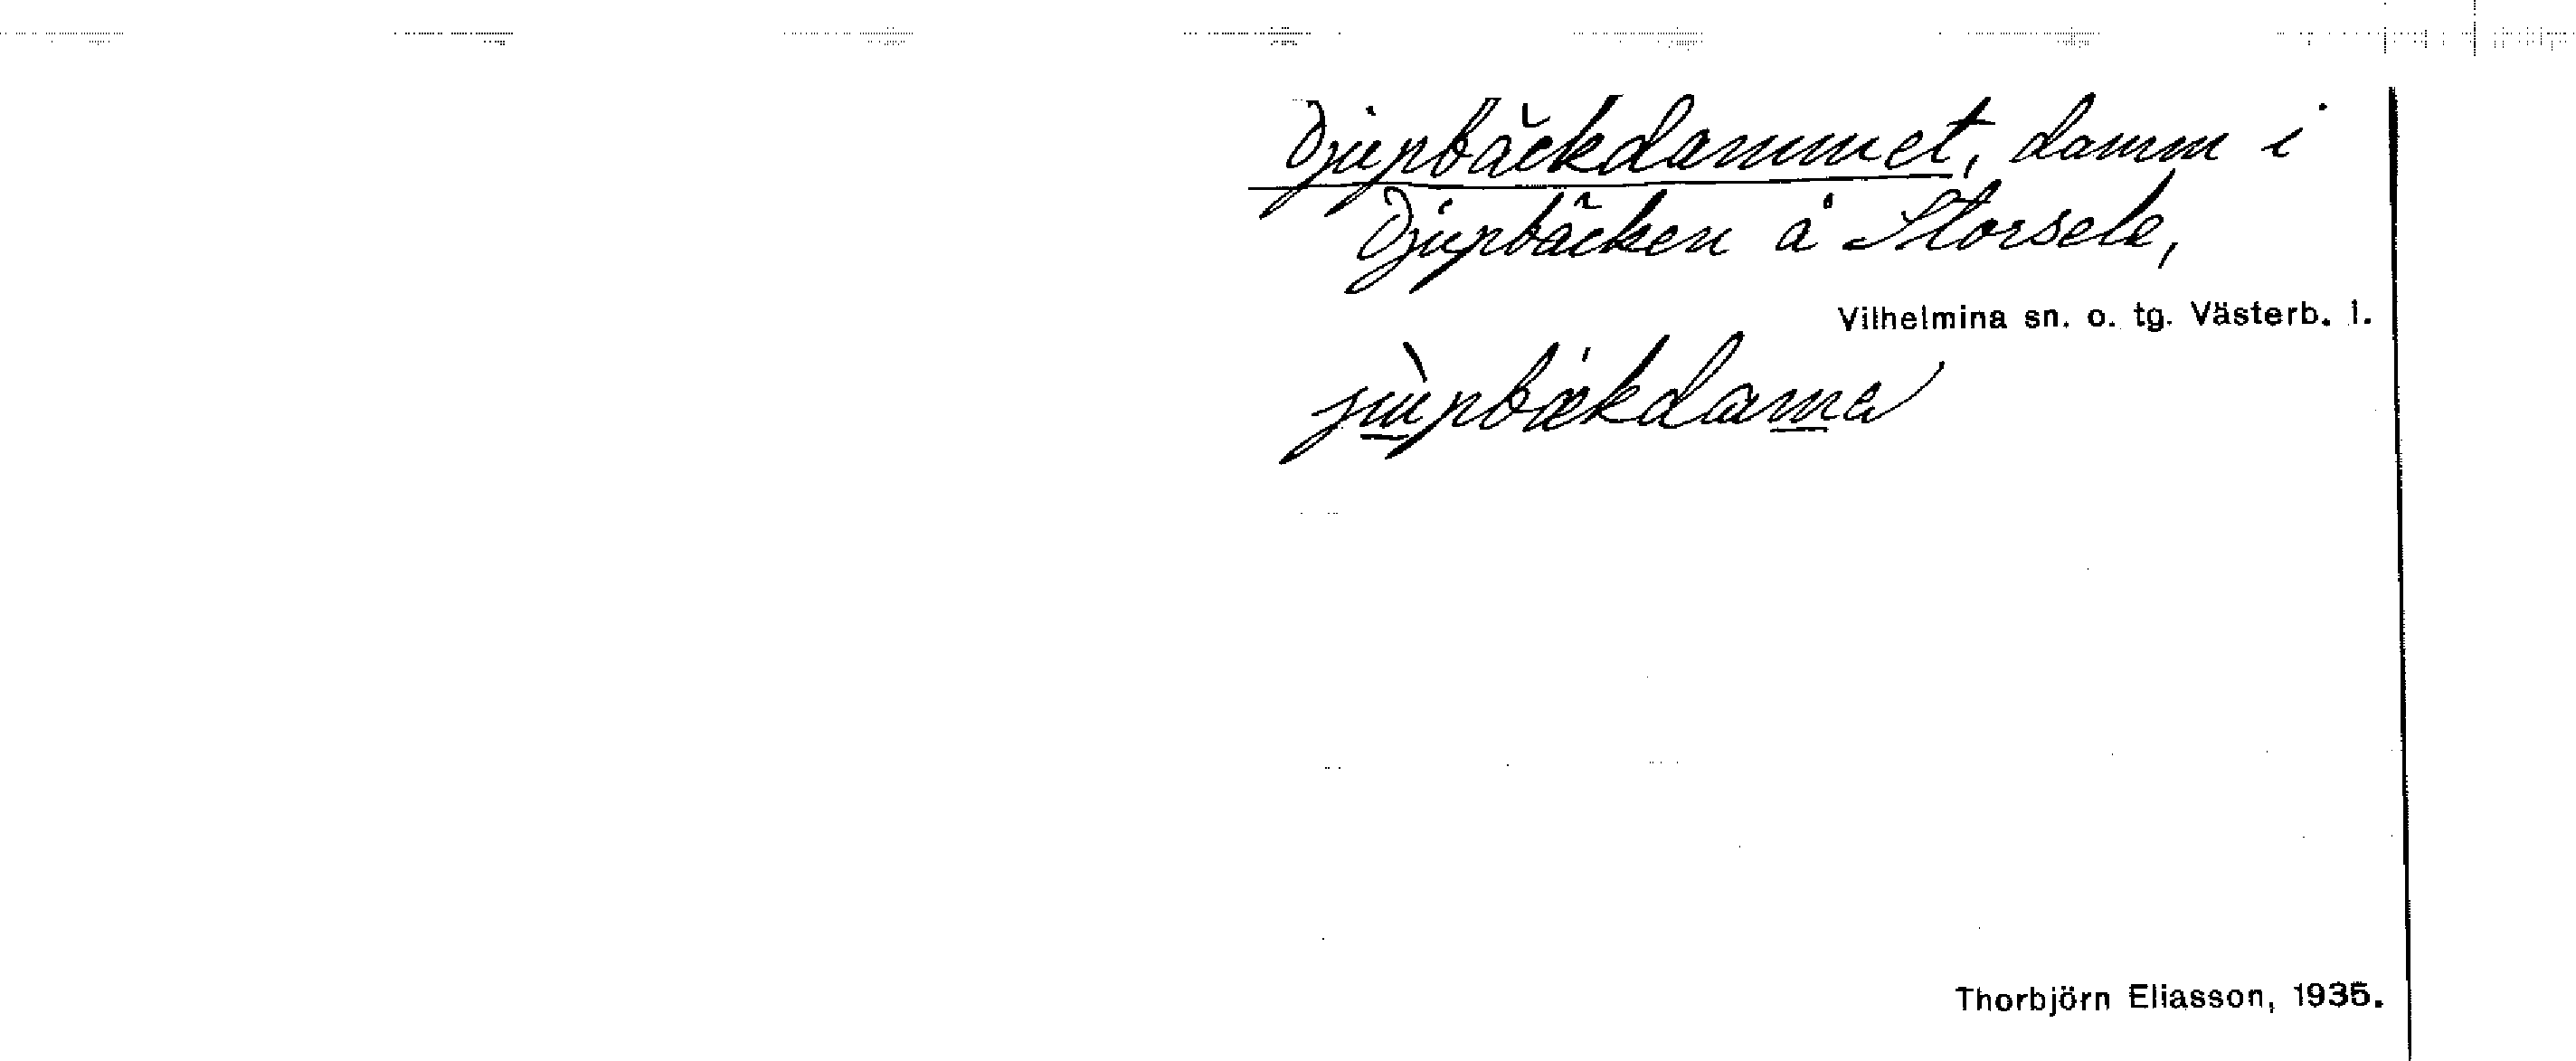 Djupbäckdammet, damm i
Djupbäcken å Storsele,
Vilhelmina sn. o. tg. Västerb. l.
jùpbækdama
Thorbjörn Eliasson, 1935.